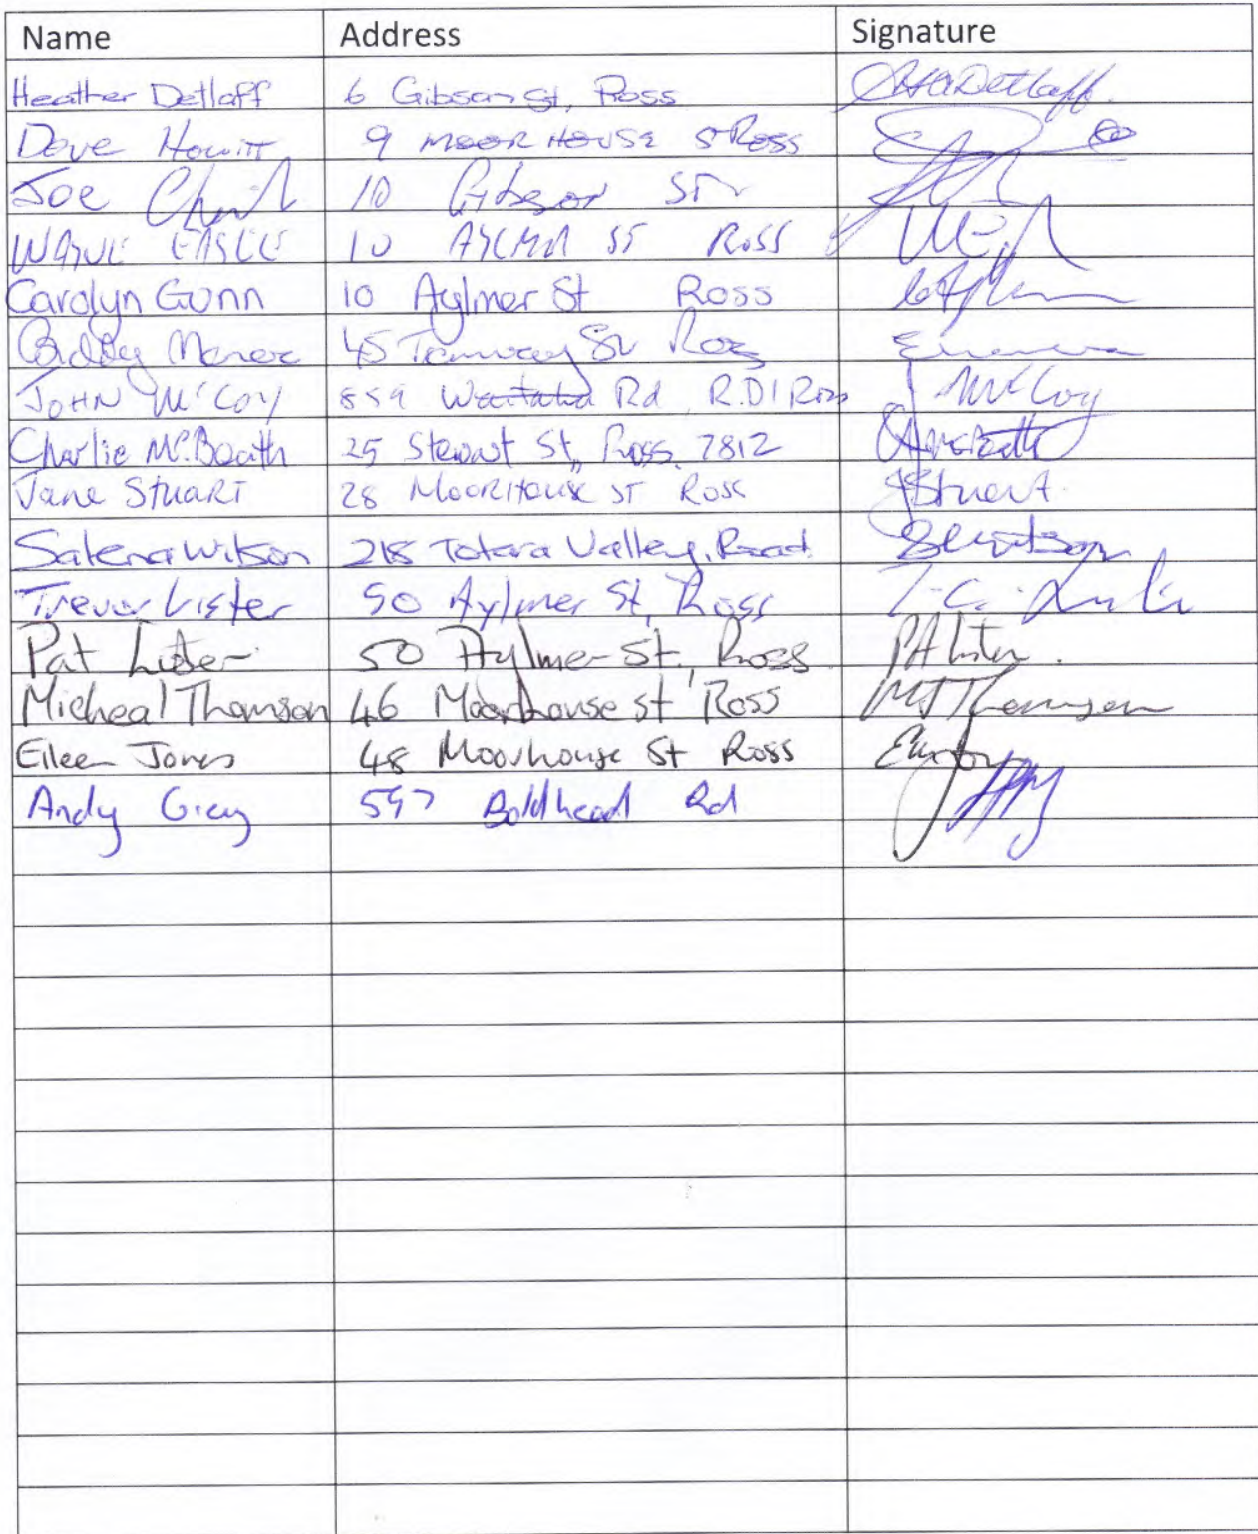 Name Address Signature
Heather Detlaff 6 Gibson St, Ross Detlaff.
Dave Howitt 9 MOORHOUSE ST Ross
Joe 10 Gibson ST
WAYNE EAGLE 10 AYLMER ST Ross
Carolyn Gunn 10 Aylmer St Ross
Biddy Manera 45 Tramway St Ross
JOHN McCoy 859 Waitaha Rd, R.D1 Ross J McCoy
Charlie McBeath 25 Stewart St, Ross, 7812
Jane STUART 28 MOORHOUSE ST ROSS JStuart.
Salena Wilson 218 Totara Valley, Road.
Trevor Lister 50 Aylmer St, Ross T.C.
Pat Lister 50 Aylmer St., Ross PALister.
Micheal Thomson 46 Moorhouse St Ross MJThomson
Eileen Jones 48 Moorhouse St Ross
Andy Gray 597 Boldhead Rd